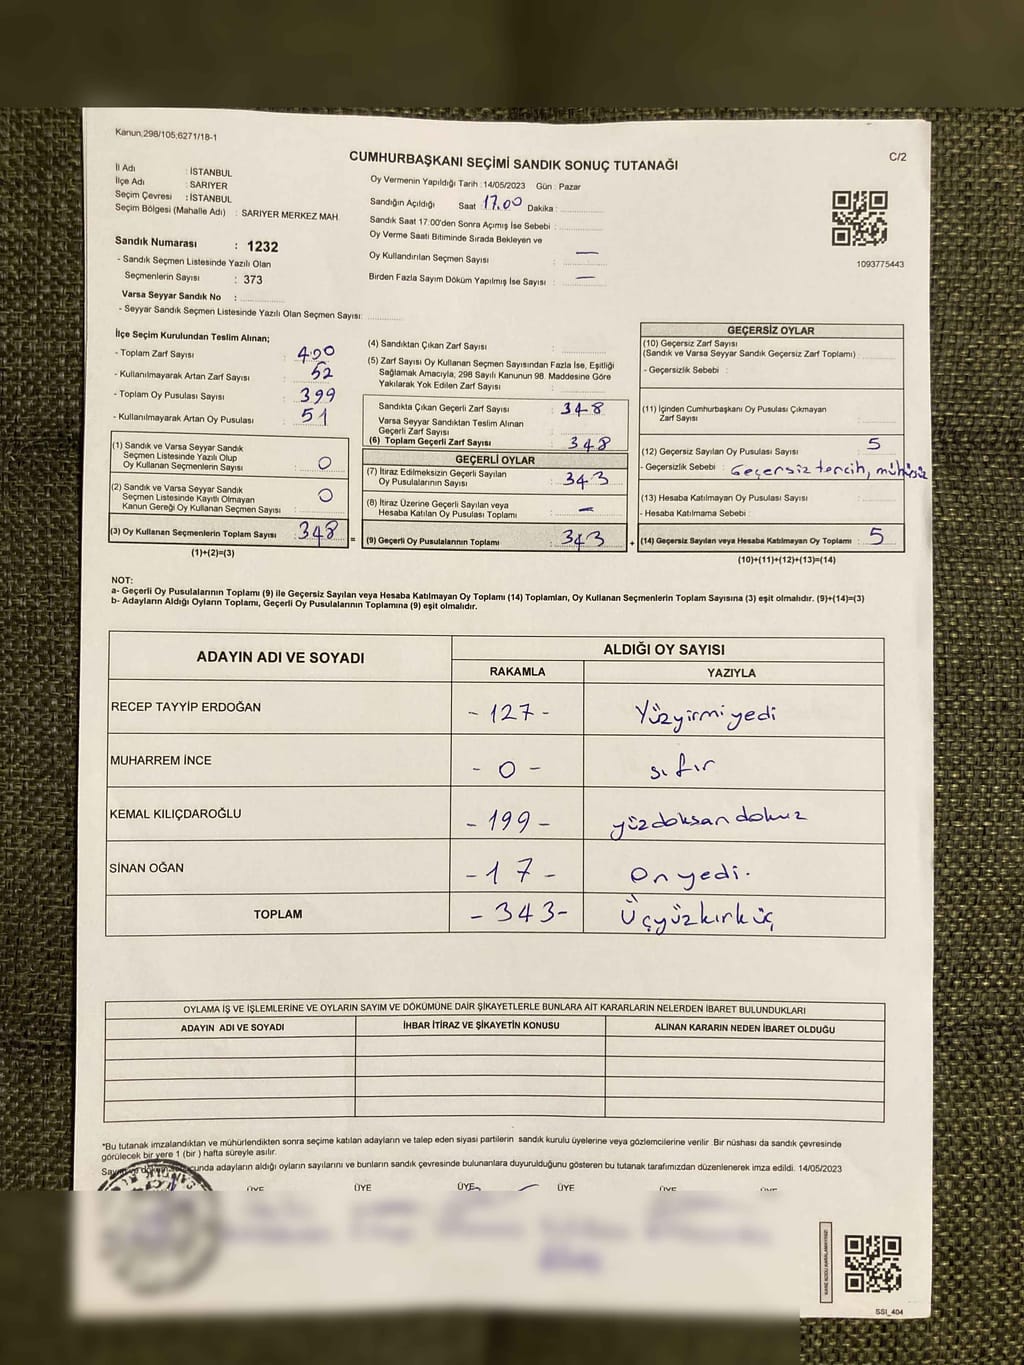 Kanun;298/105,6271/18-1
CUMHURBAŞKANI SEÇİMİ SANDIK SONUÇ TUTANAĞI
C/2
İl Adı : İSTANBUL
İlçe Adı : SARIYER
Seçim Çevresi : İSTANBUL
Seçim Bölgesi (Mahalle Adı) : SARIYER MERKEZ MAH.
Sandık Numarası : 1232
- Sandık Seçmen Listesinde Yazılı Olan
Seçmenlerin Sayısı : 373
Varsa Seyyar Sandık No :
- Seyyar Sandık Seçmen Listesinde Yazılı Olan Seçmen Sayısı:
Oy Vermenin Yapıldığı Tarih :14/05/2023 Gün : Pazar
Sandığın Açıldığı Saat 17.00 Dakika :
Sandık Saat 17:00'den Sonra Açımış İse Sebebi :
Oy Verme Saati Bitiminde Sırada Bekleyen ve
Oy Kullandırılan Seçmen Sayısı : —
Birden Fazla Sayım Döküm Yapılmış İse Sayısı : —
1093775443
İlçe Seçim Kurulundan Teslim Alınan;
- Toplam Zarf Sayısı : 400
- Kullanılmayarak Artan Zarf Sayısı : 52
- Toplam Oy Pusulası Sayısı : 399
- Kullanılmayarak Artan Oy Pusulası : 51
(1) Sandık ve Varsa Seyyar Sandık
Seçmen Listesinde Yazılı Olup
Oy Kullanan Seçmenlerin Sayısı : 0
(2) Sandık ve Varsa Seyyar Sandık
Seçmen Listesinde Kayıtlı Olmayan
Kanun Gereği Oy Kullanan Seçmen Sayısı : 0
(3) Oy Kullanan Seçmenlerin Toplam Sayısı : 348
(1)+(2)=(3)
(4) Sandıktan Çıkan Zarf Sayısı :
(5) Zarf Sayısı Oy Kullanan Seçmen Sayısından Fazla İse, Eşitliği
Sağlamak Amacıyla, 298 Sayılı Kanunun 98. Maddesine Göre
Yakılarak Yok Edilen Zarf Sayısı :
Sandıkta Çıkan Geçerli Zarf Sayısı : 348
Varsa Seyyar Sandıktan Teslim Alınan
Geçerli Zarf Sayısı :
(6) Toplam Geçerli Zarf Sayısı : 348
GEÇERLİ OYLAR
(7) İtiraz Edilmeksizin Geçerli Sayılan
Oy Pusulalarının Sayısı : 343
(8) İtiraz Üzerine Geçerli Sayılan veya
Hesaba Katılan Oy Pusulası Toplamı : —
= (9) Geçerli Oy Pusulalarının Toplamı : 343 +
GEÇERSİZ OYLAR
(10) Geçersiz Zarf Sayısı
(Sandık ve Varsa Seyyar Sandık Geçersiz Zarf Toplamı) :
- Geçersizlik Sebebi :
(11) İçinden Cumhurbaşkanı Oy Pusulası Çıkmayan
Zarf Sayısı :
(12) Geçersiz Sayılan Oy Pusulası Sayısı : 5
- Geçersizlik Sebebi : Geçersiz tercih, mühürsüz
(13) Hesaba Katılmayan Oy Pusulası Sayısı :
- Hesaba Katılmama Sebebi :
(14) Geçersiz Sayılan veya Hesaba Katılmayan Oy Toplamı : 5
(10)+(11)+(12)+(13)=(14)
NOT:
a- Geçerli Oy Pusulalarının Toplamı (9) ile Geçersiz Sayılan veya Hesaba Katılmayan Oy Toplamı (14) Toplamları, Oy Kullanan Seçmenlerin Toplam Sayısına (3) eşit olmalıdır. (9)+(14)=(3)
b- Adayların Aldığı Oyların Toplamı, Geçerli Oy Pusulalarının Toplamına (9) eşit olmalıdır.
ADAYIN ADI VE SOYADI
ALDIĞI OY SAYISI
RAKAMLA YAZIYLA
RECEP TAYYİP ERDOĞAN - 127 - Yüzyirmiyedi
MUHARREM İNCE - 0 - sıfır
KEMAL KILIÇDAROĞLU - 199 - yüzdoksandokuz
SİNAN OĞAN - 17 - Onyedi.
TOPLAM - 343 - Üçyüzkırküç
OYLAMA İŞ VE İŞLEMLERİNE VE OYLARIN SAYIM VE DÖKÜMÜNE DAİR ŞİKAYETLERLE BUNLARA AİT KARARLARIN NELERDEN İBARET BULUNDUKLARI
ADAYIN ADI VE SOYADI İHBAR İTİRAZ VE ŞİKAYETİN KONUSU ALINAN KARARIN NEDEN İBARET OLDUĞU
*Bu tutanak imzalandıktan ve mühürlendikten sonra seçime katılan adayların ve talep eden siyasi partilerin sandık kurulu üyelerine veya gözlemcilerine verilir .Bir nüshası da sandık çevresinde
görülecek bir yere 1 (bir ) hafta süreyle asılır.
Sayım ve döküm sonucunda adayların aldığı oyların sayılarını ve bunların sandık çevresinde bulunanlara duyurulduğunu gösteren bu tutanak tarafımızdan düzenlenerek imza edildi. 14/05/2023
ÜYE ÜYE ÜYE ÜYE ÜYE ÜYE
SSI_404